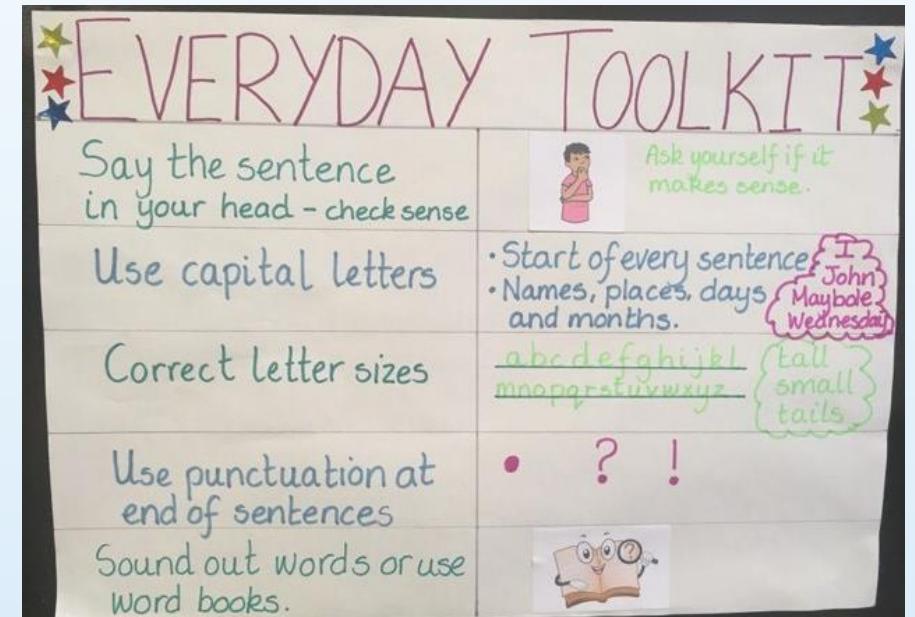 EVERYDAY TOOLKIT
Say the sentence
in your head - check sense
Ask yourself if it
makes sense.
Use capital letters
• Start of every sentence
• Names, places, days
and months.
I
John
Maybole
Wednesday
Correct letter sizes
abcdefghijkl
mnopqrstuvwxyz
tall
small
tails
Use punctuation at
end of sentences
. ? !
Sound out words or use
word books.
?